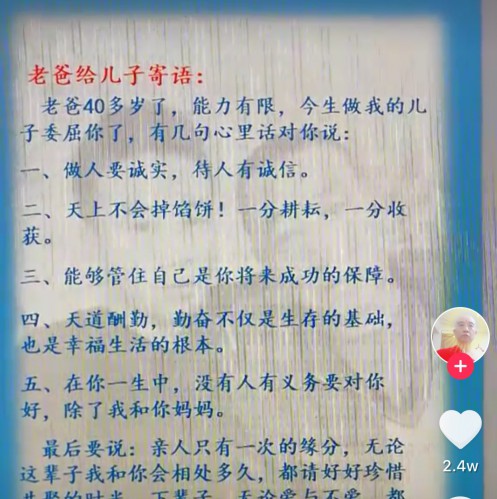 老爸给儿子寄语：
老爸40多岁了，能力有限，今生做我的儿
子委屈你了，有几句心里话对你说：
一、做人要诚实，待人有诚信。
二、天上不会掉馅饼！一分耕耘，一分收
获。
三、能够管住自己是你将来成功的保障。
四、天道酬勤，勤奋不仅是生存的基础，
也是幸福生活的根本。
五、在你一生中，没有人有义务要对你
好，除了我和你妈妈。
最后要说：亲人只有一次的缘分，无论
这辈子我和你会相处多久，都请好好珍惜
共聚的时光，下辈子，无论爱与不爱，都
2.4w